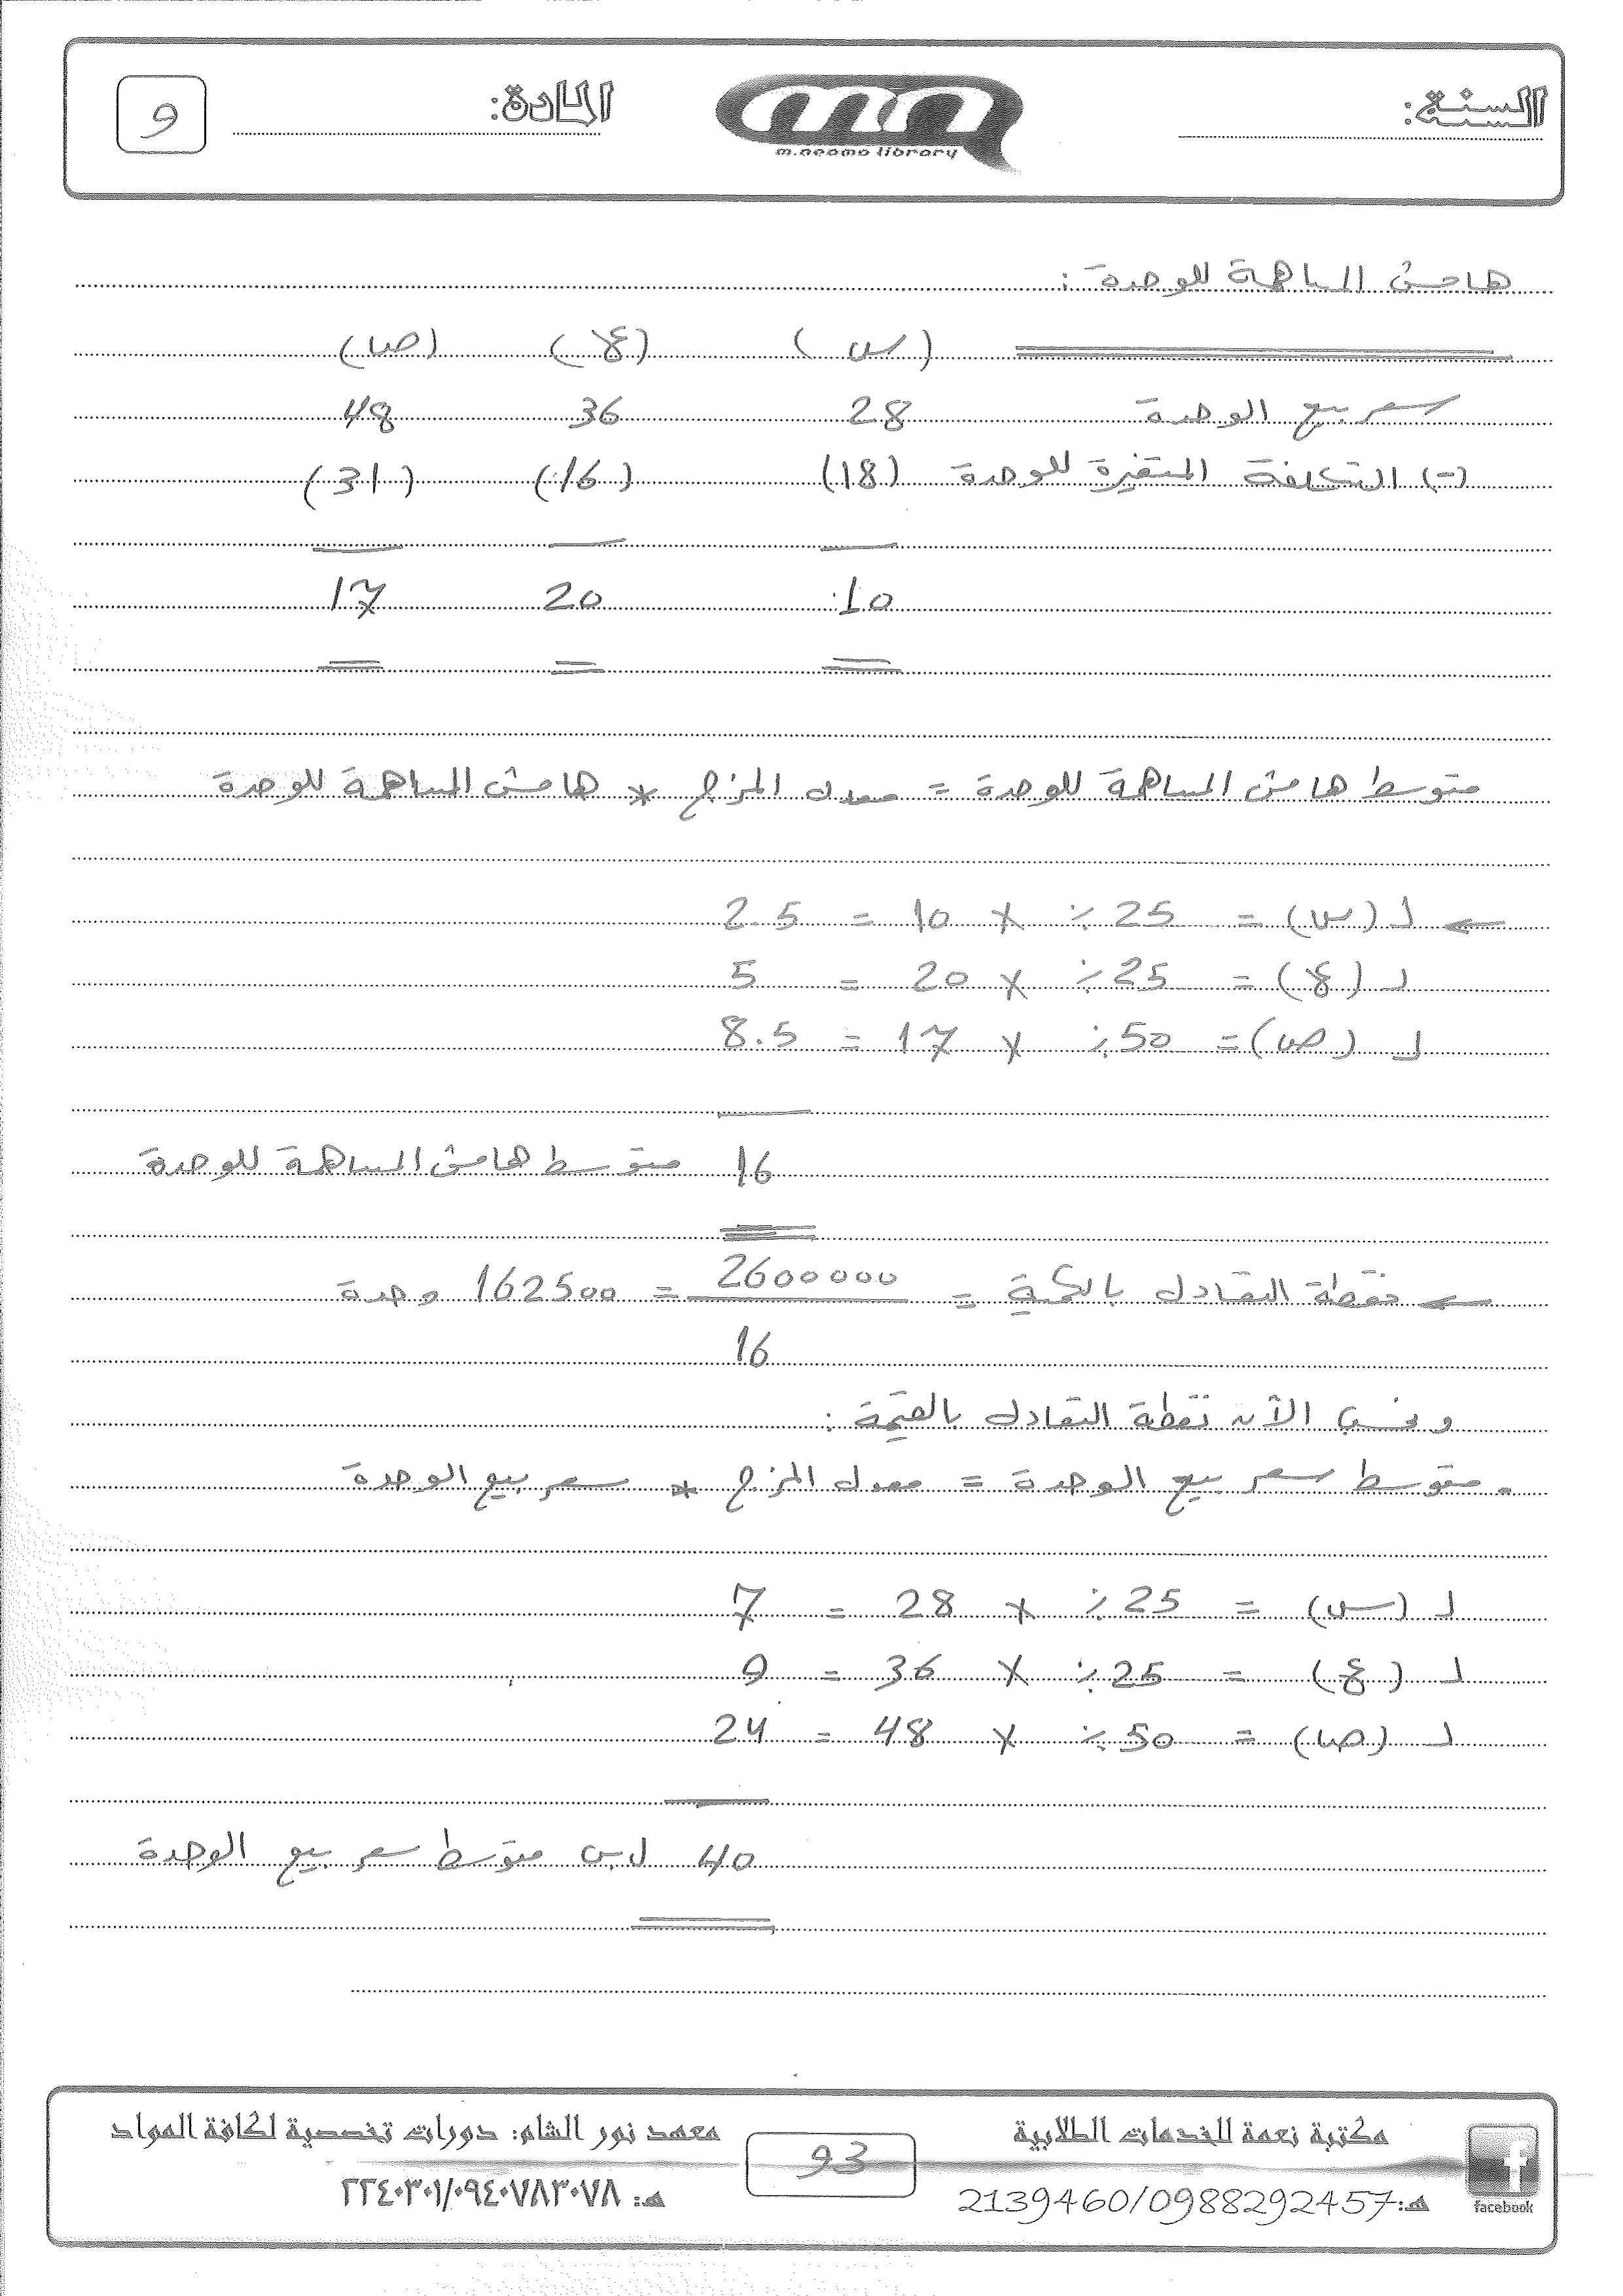 السنة:
m.neama library
المادة:
و
هامش المساهمة للوحدة :
(س) (ع) (ص)
سعر بيع الوحدة 28 36 48
(-) التكلفة المتغيرة للوحدة (18) (16) (31)
10 20 17
متوسط هامش المساهمة للوحدة = معدل المزج * هامش المساهمة للوحدة
← لـ (س) = 25 ٪ × 10 = 2.5
لـ (ع) = 25 ٪ × 20 = 5
لـ (ص) = 50 ٪ × 17 = 8.5
16 متوسط هامش المساهمة للوحدة
← نقطة التعادل بالكمية = 2600000 = 162500 وحدة
16
و نحسب الآن نقطة التعادل بالقيمة :
. متوسط سعر بيع الوحدة = معدل المزج * سعر بيع الوحدة
لـ (س) = 25 ٪ × 28 = 7
لـ (ع) = 25 ٪ × 36 = 9
لـ (ص) = 50 ٪ × 48 = 24
40 ل.س متوسط سعر بيع الوحدة
مكتبة نعمة للخدمات الطلابية
هـ: 2139460/0988292457
facebook
93
معهد نور الشام: دورات تخصصية لكافة المواد
هـ: ٢٢٤٠٣٠١/٠٩٤٠٧٨٣٠٧٨